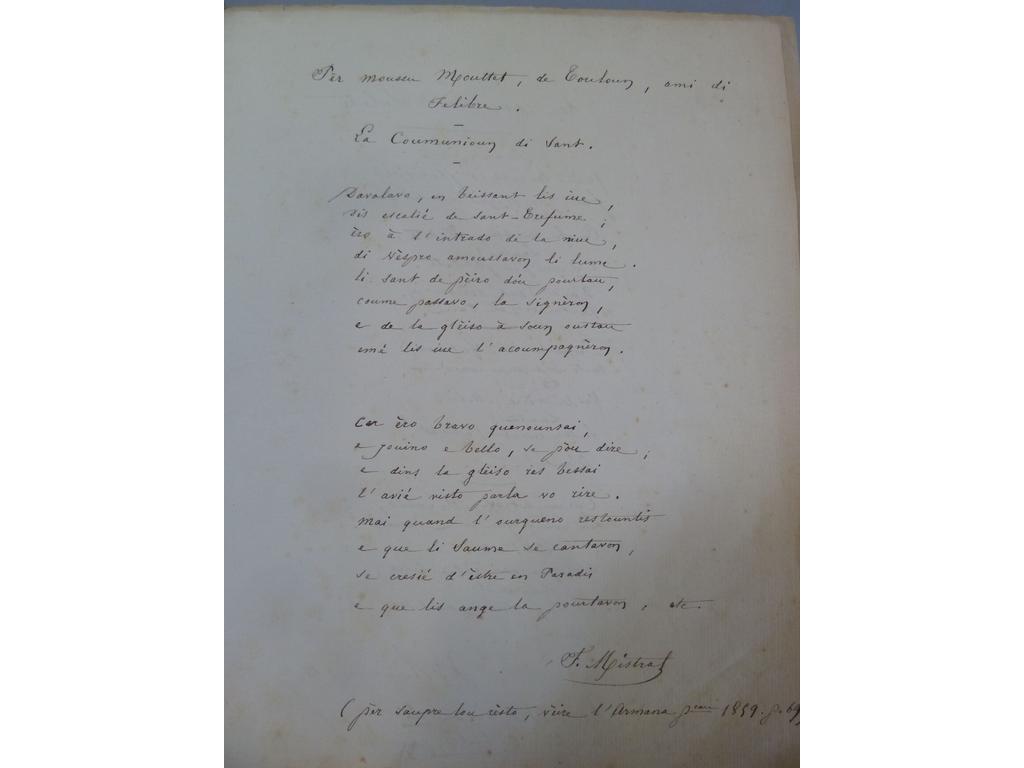 Pèr moussu Mouttet, de Touloun, ami di
Felibre.
La Coumunioun di Sant.
Davalavo, en beissant lis iue,
dis escalié de Sant-Trefume;
èro à l'intrado de la niue,
di Vèspro amoussavon li lume.
li sant de pèiro dóu pourtau,
coume passavo, la signèron,
e de la glèiso à soun oustau
emé lis iue l'acoumpagnèron.
Car èro bravo quenounsai,
e jouino e bello, se pòu dire;
e dins la glèiso res bessai
l'avié visto parla vo rire.
mai quand l'ourgueno restountis
e que li Saume se cantavon,
se cresié d'èstre en Paradis
e que lis ange la pourtavon, etc.
F. Mistral
(pèr saupre lou rèsto, vèire l'Armana 1859. p. 69)